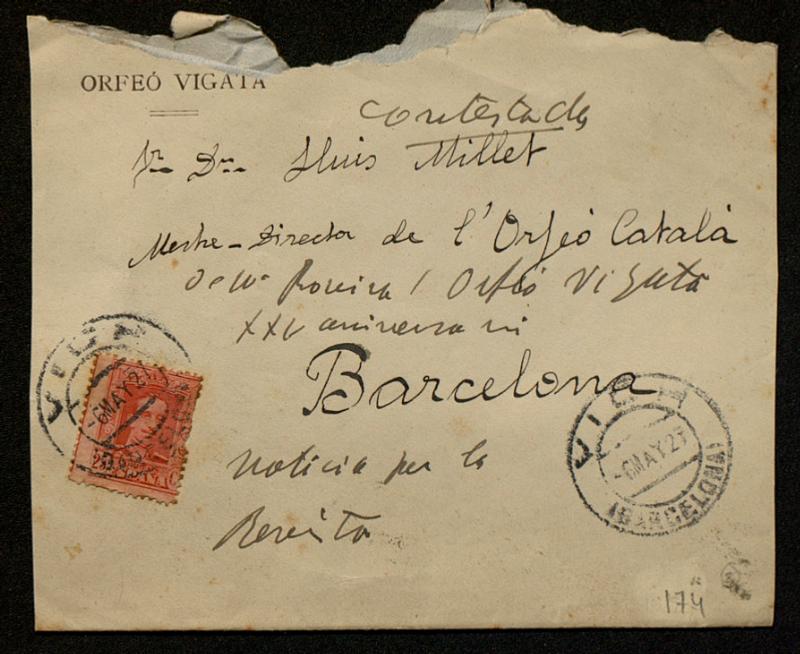 ORFEÓ VIGATÀ
Contestada
Sr. Dn. Lluis Millet
Mestre-Director de l'Orfeó Català
Rovira / Orfeó Vigatà
XXV aniversari
Barcelona
Noticia per la
Revista
VICH
-6 MAY 27
VICH
-6 MAY 27
(BARCELONA)
174